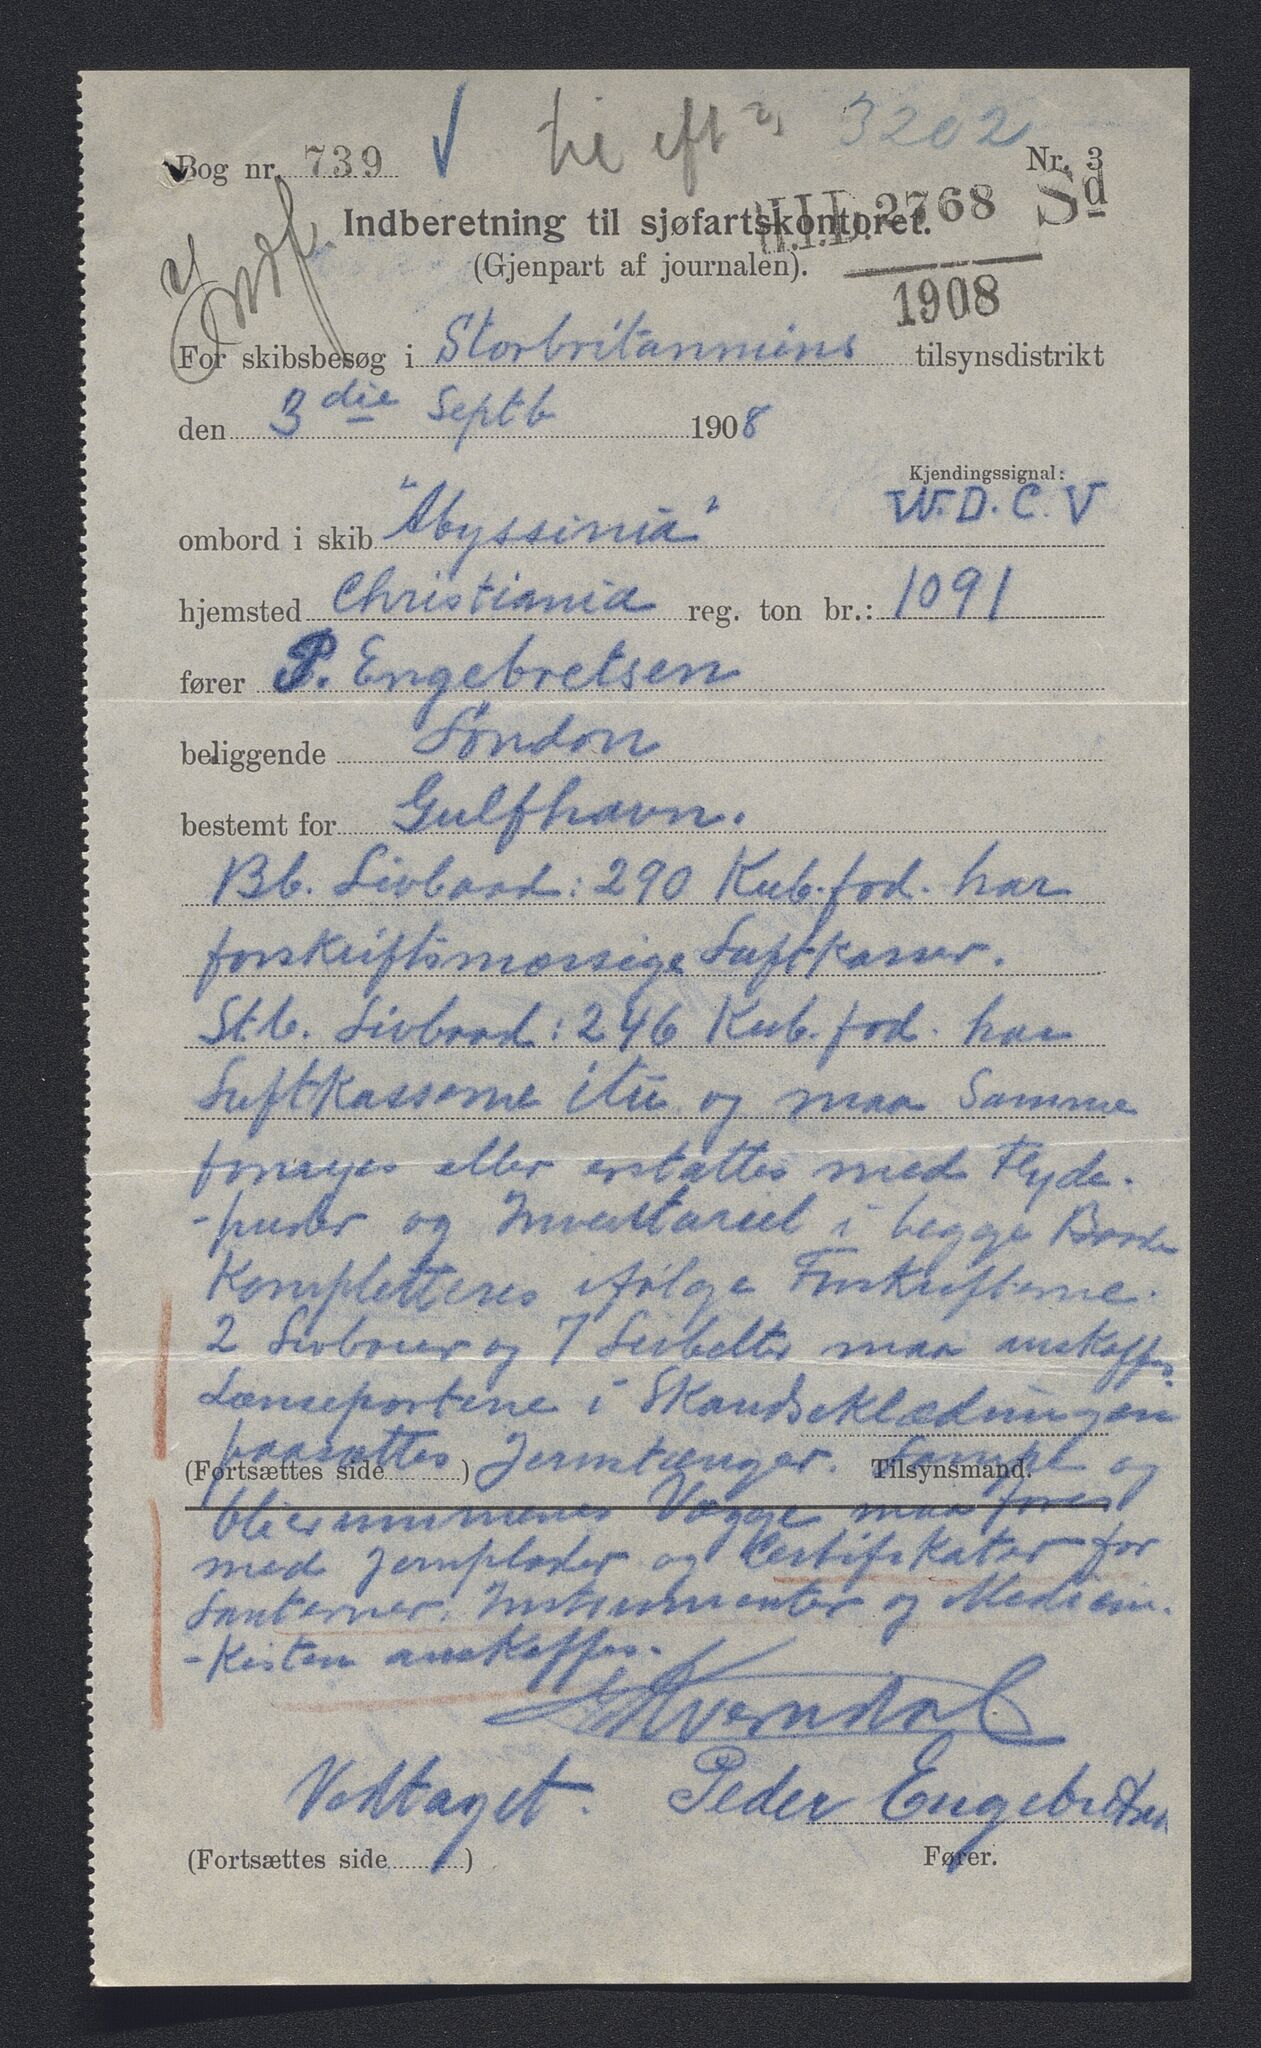 3202
Bog nr. 739
Nr. 3
J. I. D. 2768 Sd
1908
Indberetning til sjøfartskontoret.
(Gjenpart af journalen).
For skibsbesøg i Storbritanniens tilsynsdistrikt
den 3die Septb 1908
Kjendingssignal:
ombord i skib "Abyssinia" W. D. C. V
hjemsted Christiania reg. ton br.: 1091
fører P. Engebretsen
beliggende London
bestemt for Gulfhavn.
Bb. Livbaad: 290 Kub. fod. har
forskriftsmæssige Luftkasser.
Stb. Livbaad: 246 Kub. fod. har
Luftkasserne itu og maa Samme
fornyes eller erstattes med Flyde-
-puder og Inventariet i begge Baade
Kompletteres ifølge Forskrifterne.
2 Livbøier og 7 Livbelter maa anskaffes.
Lænseportene i Skandseklædningen
paasættes Jernstænger. Lampe og
(Fortsættes side ) Tilsynsmand.
Vægge maa fores
med Jernplader og Certifikater for
Lanterner, Instrumenter og Medicin-
-Kisten anskaffes.
Kverndal
Vedtaget. Peder Engebretsen
(Fortsættes side ) Fører.